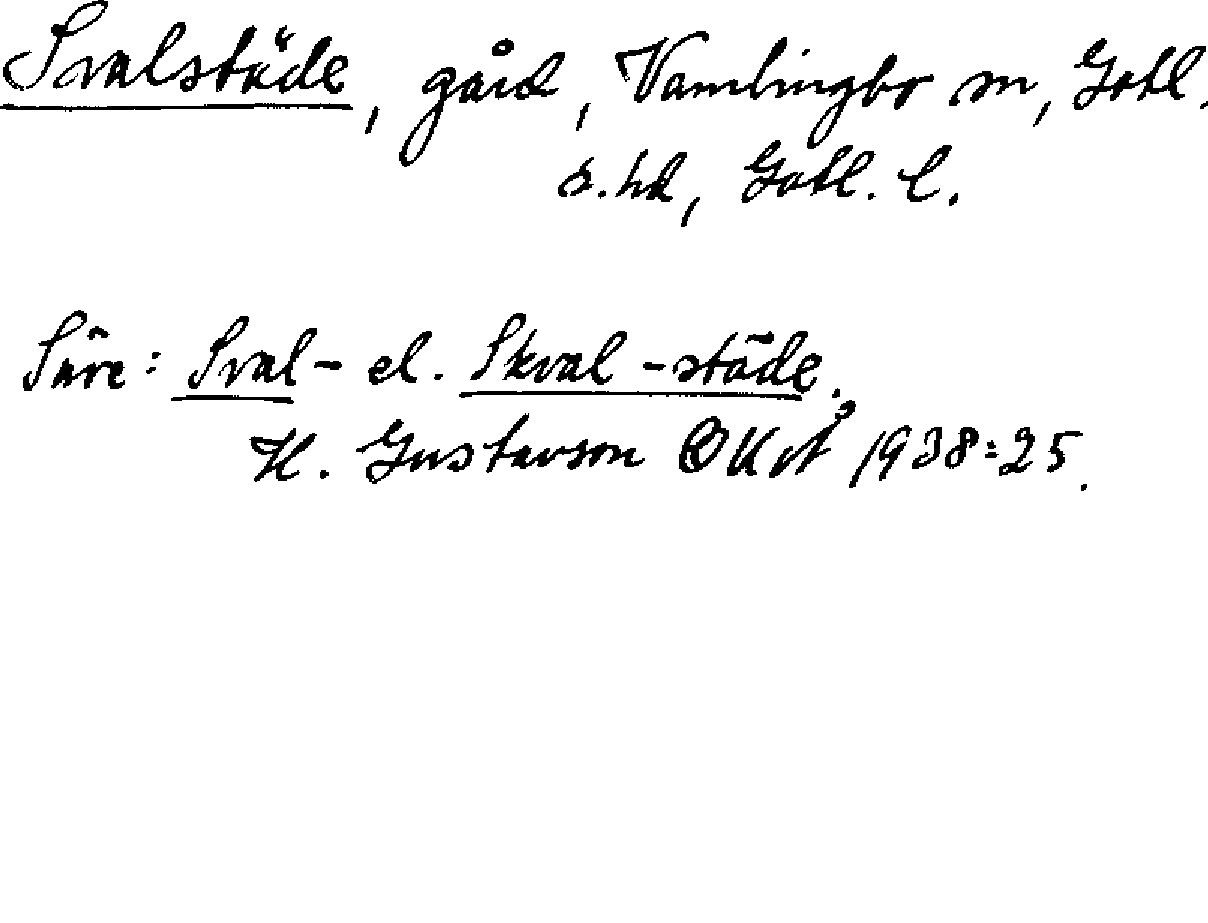 Svalstäde, gård, Vamlingbo sn, Gotl.
s. hd, Gotl. l.
Säve: Sval- el. Skval -städe.
H. Gustavson OUÅ 1938:25.